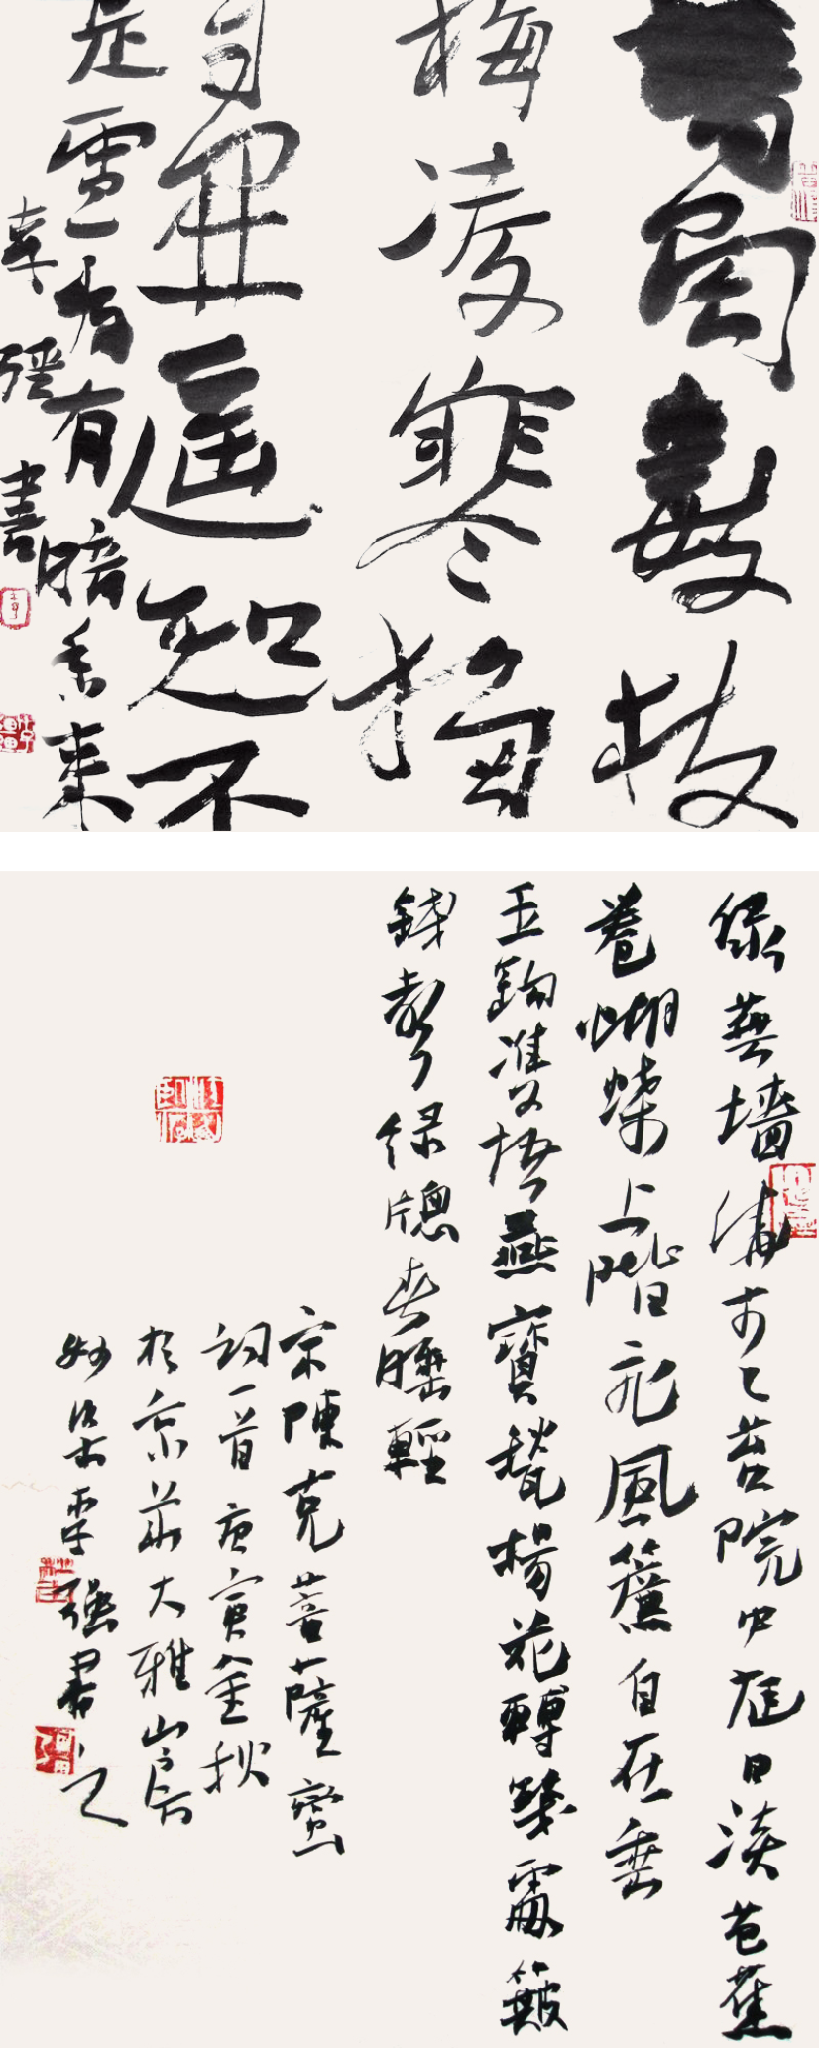 墙角數枝
梅凌寒獨
自開遥知不
是雪為有暗香来
李强書
绿蕪墙繞青苔院中庭日淡芭蕉
卷蝴蝶上階飛風簾自在垂
玉鉤雙語燕寶甃楊花轉幾處簸
錢聲绿牕春睡輕
宋陳克菩薩蠻
詞一首庚寅金秋
於京華大雅山房
李强書之